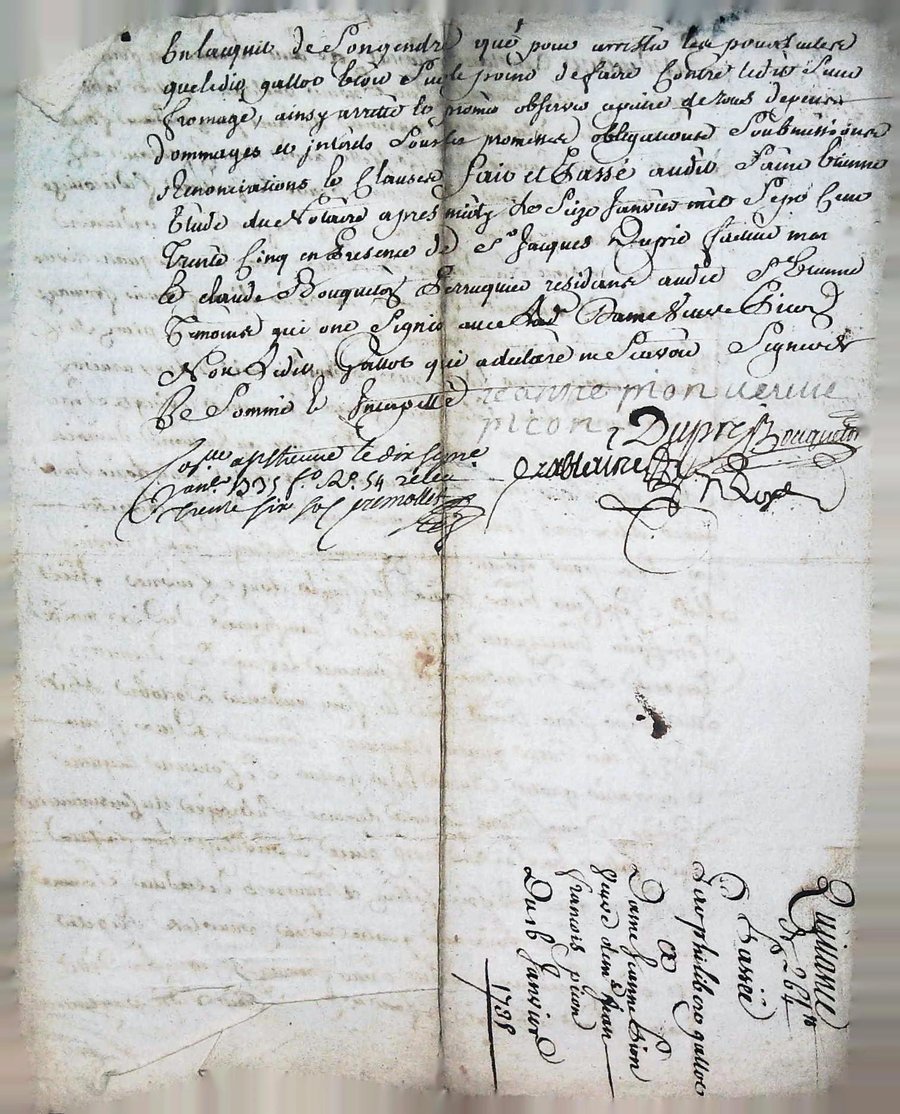 En lacquit de Son gendre que pour arrester les poursuites
que ledit gallot etoit Sur le point de faire Contre ledit Sieur
fromage, ainsy arresté et promis observer a peine de tous depens
dommages et interets Sous les promesses obligations Soubmissions
Renonciations et Clauses fait et Passé audit Saint Etienne
Etude du Notaire apres midy le Seize Janvier mil Sept Cent
Trente Cinq en Presence de Sr Jacques Dupré
et claude Bouqueton Perruquier residans audit St Etienne
Temoins qui ont Signé avec Dame veuve Picon
Non Ledit Gallot qui a declaré ne Scavoir Signer de
Ce Sommé et Interpellé jeanne mon veuve
picon Dupré Bouqueton
a St Etienne le dix sept
janer 1735 fo 28 54 recu
trente six sols
Quittance
de 264 ₶
Passée
Par philibert gallot
a
Dame Jeanne Mon
veuve de mr Jean
francois picon
Du 16 Janvier
1735